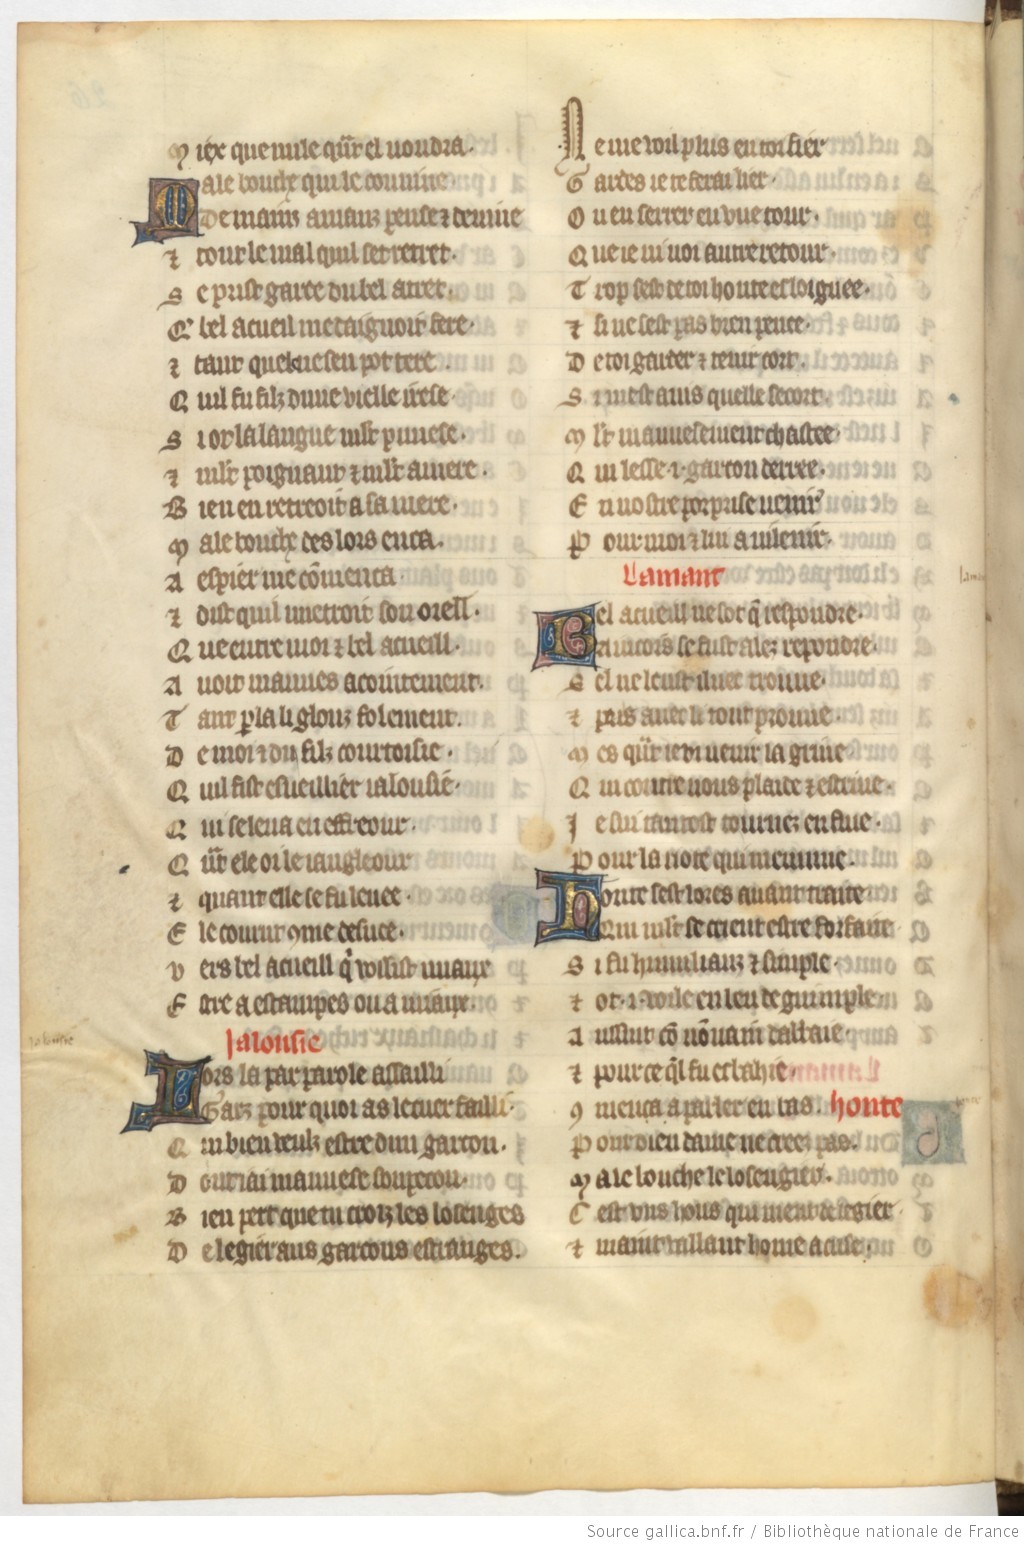 M iex que nule qũr el uoudra.
M ale bouche qui le couuine
De mains amanz pense z deuine
z tout le mal quil set retret.
S e prist garde du bel atret.
Q bel acueil me daignoit fere.
z tant quel ne sen pot tere.
Q uil fu filz dune vielle irese.
S i ot la langue mlt punese.
z mlt poignant z mlt amere.
B ien en retreoit a sa mere.
M ale bouche des lors enca.
A espier me cõmenca.
z dist quil metroit son orell.
Q ue entre moi z bel acueill.
A uoit mauues acointement.
T ant pla li glouz folement.
D e moi z du filz courtoisie.
Q uil fist esueillier ialousie.
Q ui se leua en effreour.
Q ũt ele oi le iangleour
z quant elle se fu leuee.
E le courut 9me desuee.
V ers bel acueill q̃ vosist miaux
E stre a estampes ou a miaux.
Jalousie
Lors la par parole assailli
Garz pour quoi as le cuer failli.
Q ui bien veulz estre dun garcon.
D ont iai mauuese soupecon.
B ien pert que tu croiz les losenges
D e legier aus garcons estranges.
N e me voil plus en toi fier
C ertes ie te ferai lier.
O u enserrer en vne tour.
Q ue ie ni uoi autre retour.
T rop sest de toi honte esloignee.
z si ne sest pas bien penee.
D e toi garder z tenir cort.
S i mest auis quelle secort.
M lt mauuesement chastee.
Q ui lesse .i. garcon derree.
E n nostre porprise uenir
P our moi z lui auilenir.
Lamant
Bel acueill ne sot q̃ respondre.
Eincois se fust alez repondre.
S el ne leust iluec trouue.
z pris auec li tout prouue.
M es qũt ie ui uenir la griue
Q ui contre nous plaide z estriue.
J e sui tantost tournez en fuie.
P our la note qui mennuie.
Honte sest lores auant traite
Qui mlt se crient estre forfaite
S i fu humilianz z simple.
z ot .i. voile en leu de guimple.
A ussint cõ nõnain dabaie.
z pour ce q̃l fu esbahie.
9 menca a parler en bas. honte
P our dieu dame ne creez pas.
M ale bouche le losengier.
C est vns hons qui ment de legier
z maint vaillant home acuse.
Source gallica.bnf.fr / Bibliothèque nationale de France